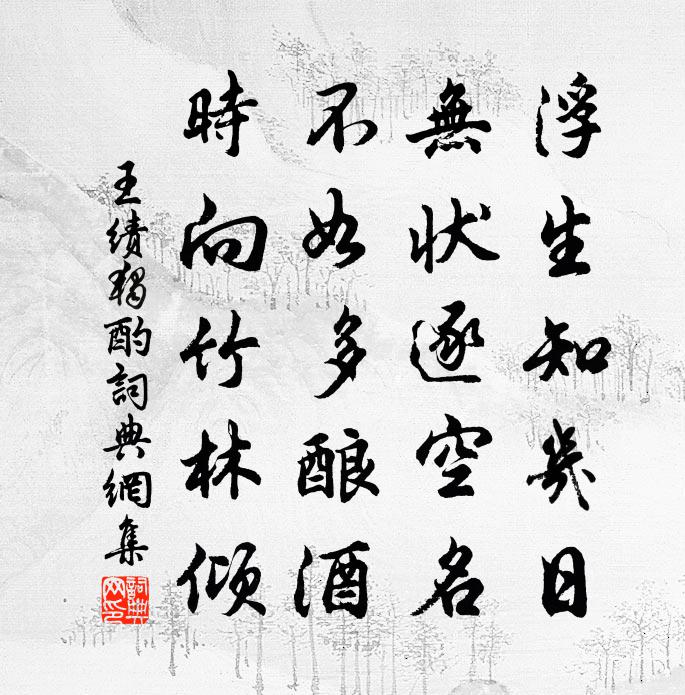 浮生知幾日
無狀逐空名
不如多酿酒
時向竹林傾
王績獨酌詞典網集
詞典網印